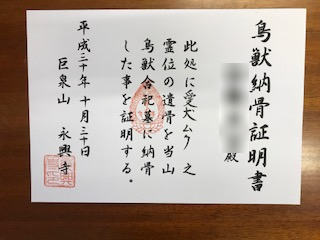 鳥獣納骨証明書
殿
此処に愛犬ムク之
霊位の遺骨を当山
鳥獣合祀墓に納骨
した事を証明する。
平成三十年十月三十日
巨泉山 永興寺